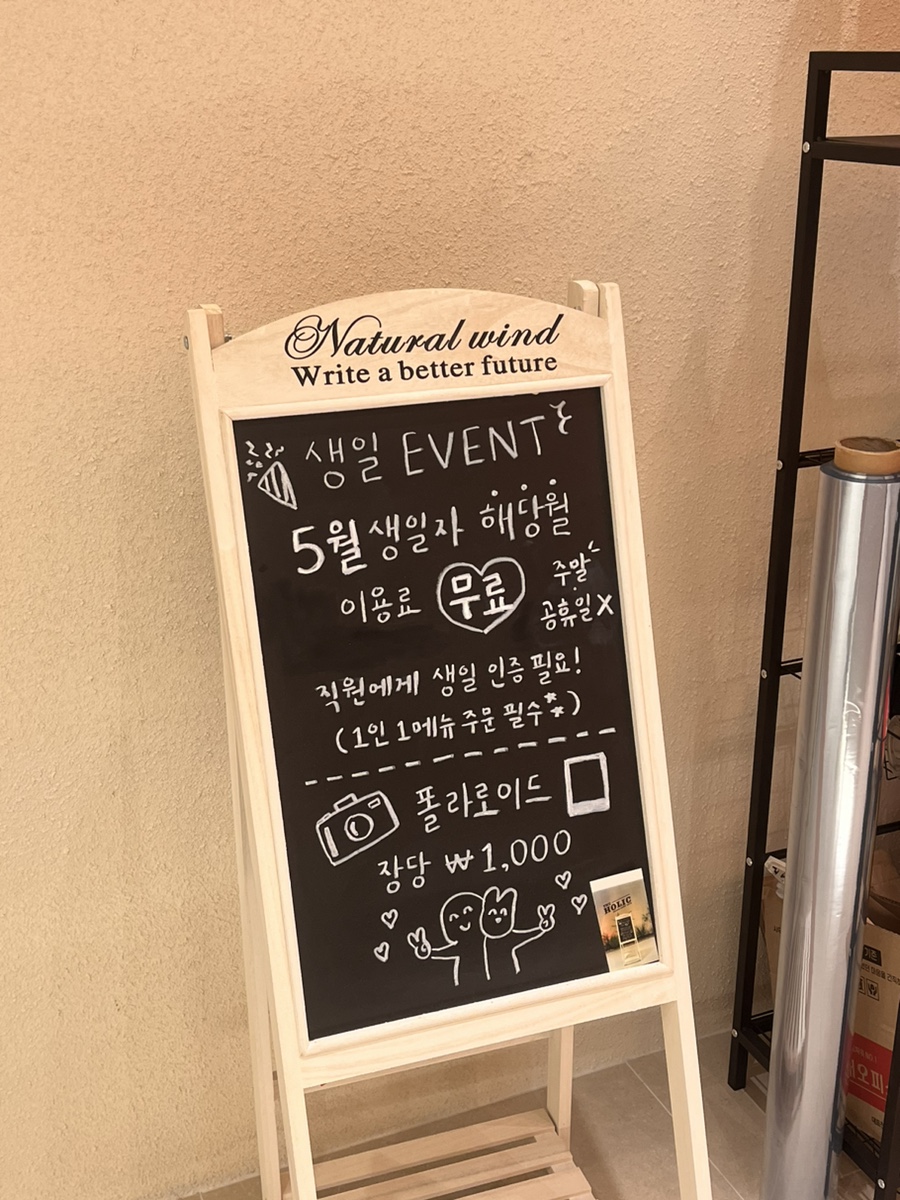 Natural wind
Write a better future
생일 EVENT
5월 생일자 해당월
이용료 무료 주말
공휴일X
직원에게 생일 인증 필요!
(1인 1메뉴 주문 필수**)
폴라로이드
장당 ₩1,000
HOLIC